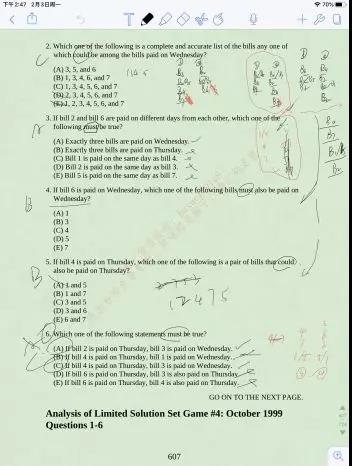 下午2:47 2月3日周一
70%
2. Which one of the following is a complete and accurate list of the bills any one of
which could be among the bills paid on Wednesday?
(A) 3, 5, and 6
(B) 1, 3, 4, 6, and 7
(C) 1, 3, 4, 5, 6, and 7
(D) 2, 3, 4, 5, 6, and 7
(E) 1, 2, 3, 4, 5, 6, and 7
3. If bill 2 and bill 6 are paid on different days from each other, which one of the
following must be true?
(A) Exactly three bills are paid on Wednesday.
(B) Exactly three bills are paid on Thursday.
(C) Bill 1 is paid on the same day as bill 4.
(D) Bill 2 is paid on the same day as bill 3.
(E) Bill 5 is paid on the same day as bill 7.
4. If bill 6 is paid on Wednesday, which one of the following bills must also be paid on
B
Wednesday?
(A) 1
(B) 3
(C) 4
(D) 5
(E) 7
5. If bill 4 is paid on Thursday, which one of the following is a pair of bills that could
B
also be paid on Thursday?
(A) 1 and 5
(B) 1 and 7
(C) 3 and 5
(D) 3 and 6
(E) 6 and 7
12475
6. Which one of the following statements must be true?
(A) If bill 2 is paid on Thursday, bill 3 is paid on Wednesday.
(B) If bill 4 is paid on Thursday, bill 1 is paid on Wednesday.
(C) If bill 4 is paid on Thursday, bill 3 is paid on Wednesday.
(D) If bill 6 is paid on Thursday, bill 3 is also paid on Thursday.
(E) If bill 6 is paid on Thursday, bill 4 is also paid on Thursday.
GO ON TO THE NEXT PAGE.
Analysis of Limited Solution Set Game #4: October 1999
Questions 1-6
607